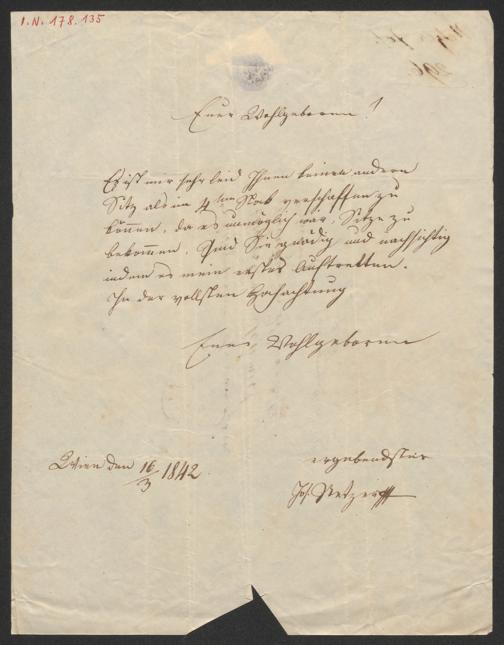 I.N. 178.135
Euer Wohlgeboren!
Es ist mir sehr leid Ihnen keinen andern
Sitz als im 4ten Stok verschaffen zu
können, da es unmöglich war, Sitze zu
bekommen. Sind Sie gnädig und nachsichtig
indem es mein erstes Auftretten.
In der vollsten Hochachtung
Euer Wohlgeboren
Wien den 16/3 1842
ergebendster
Jos. Netzer